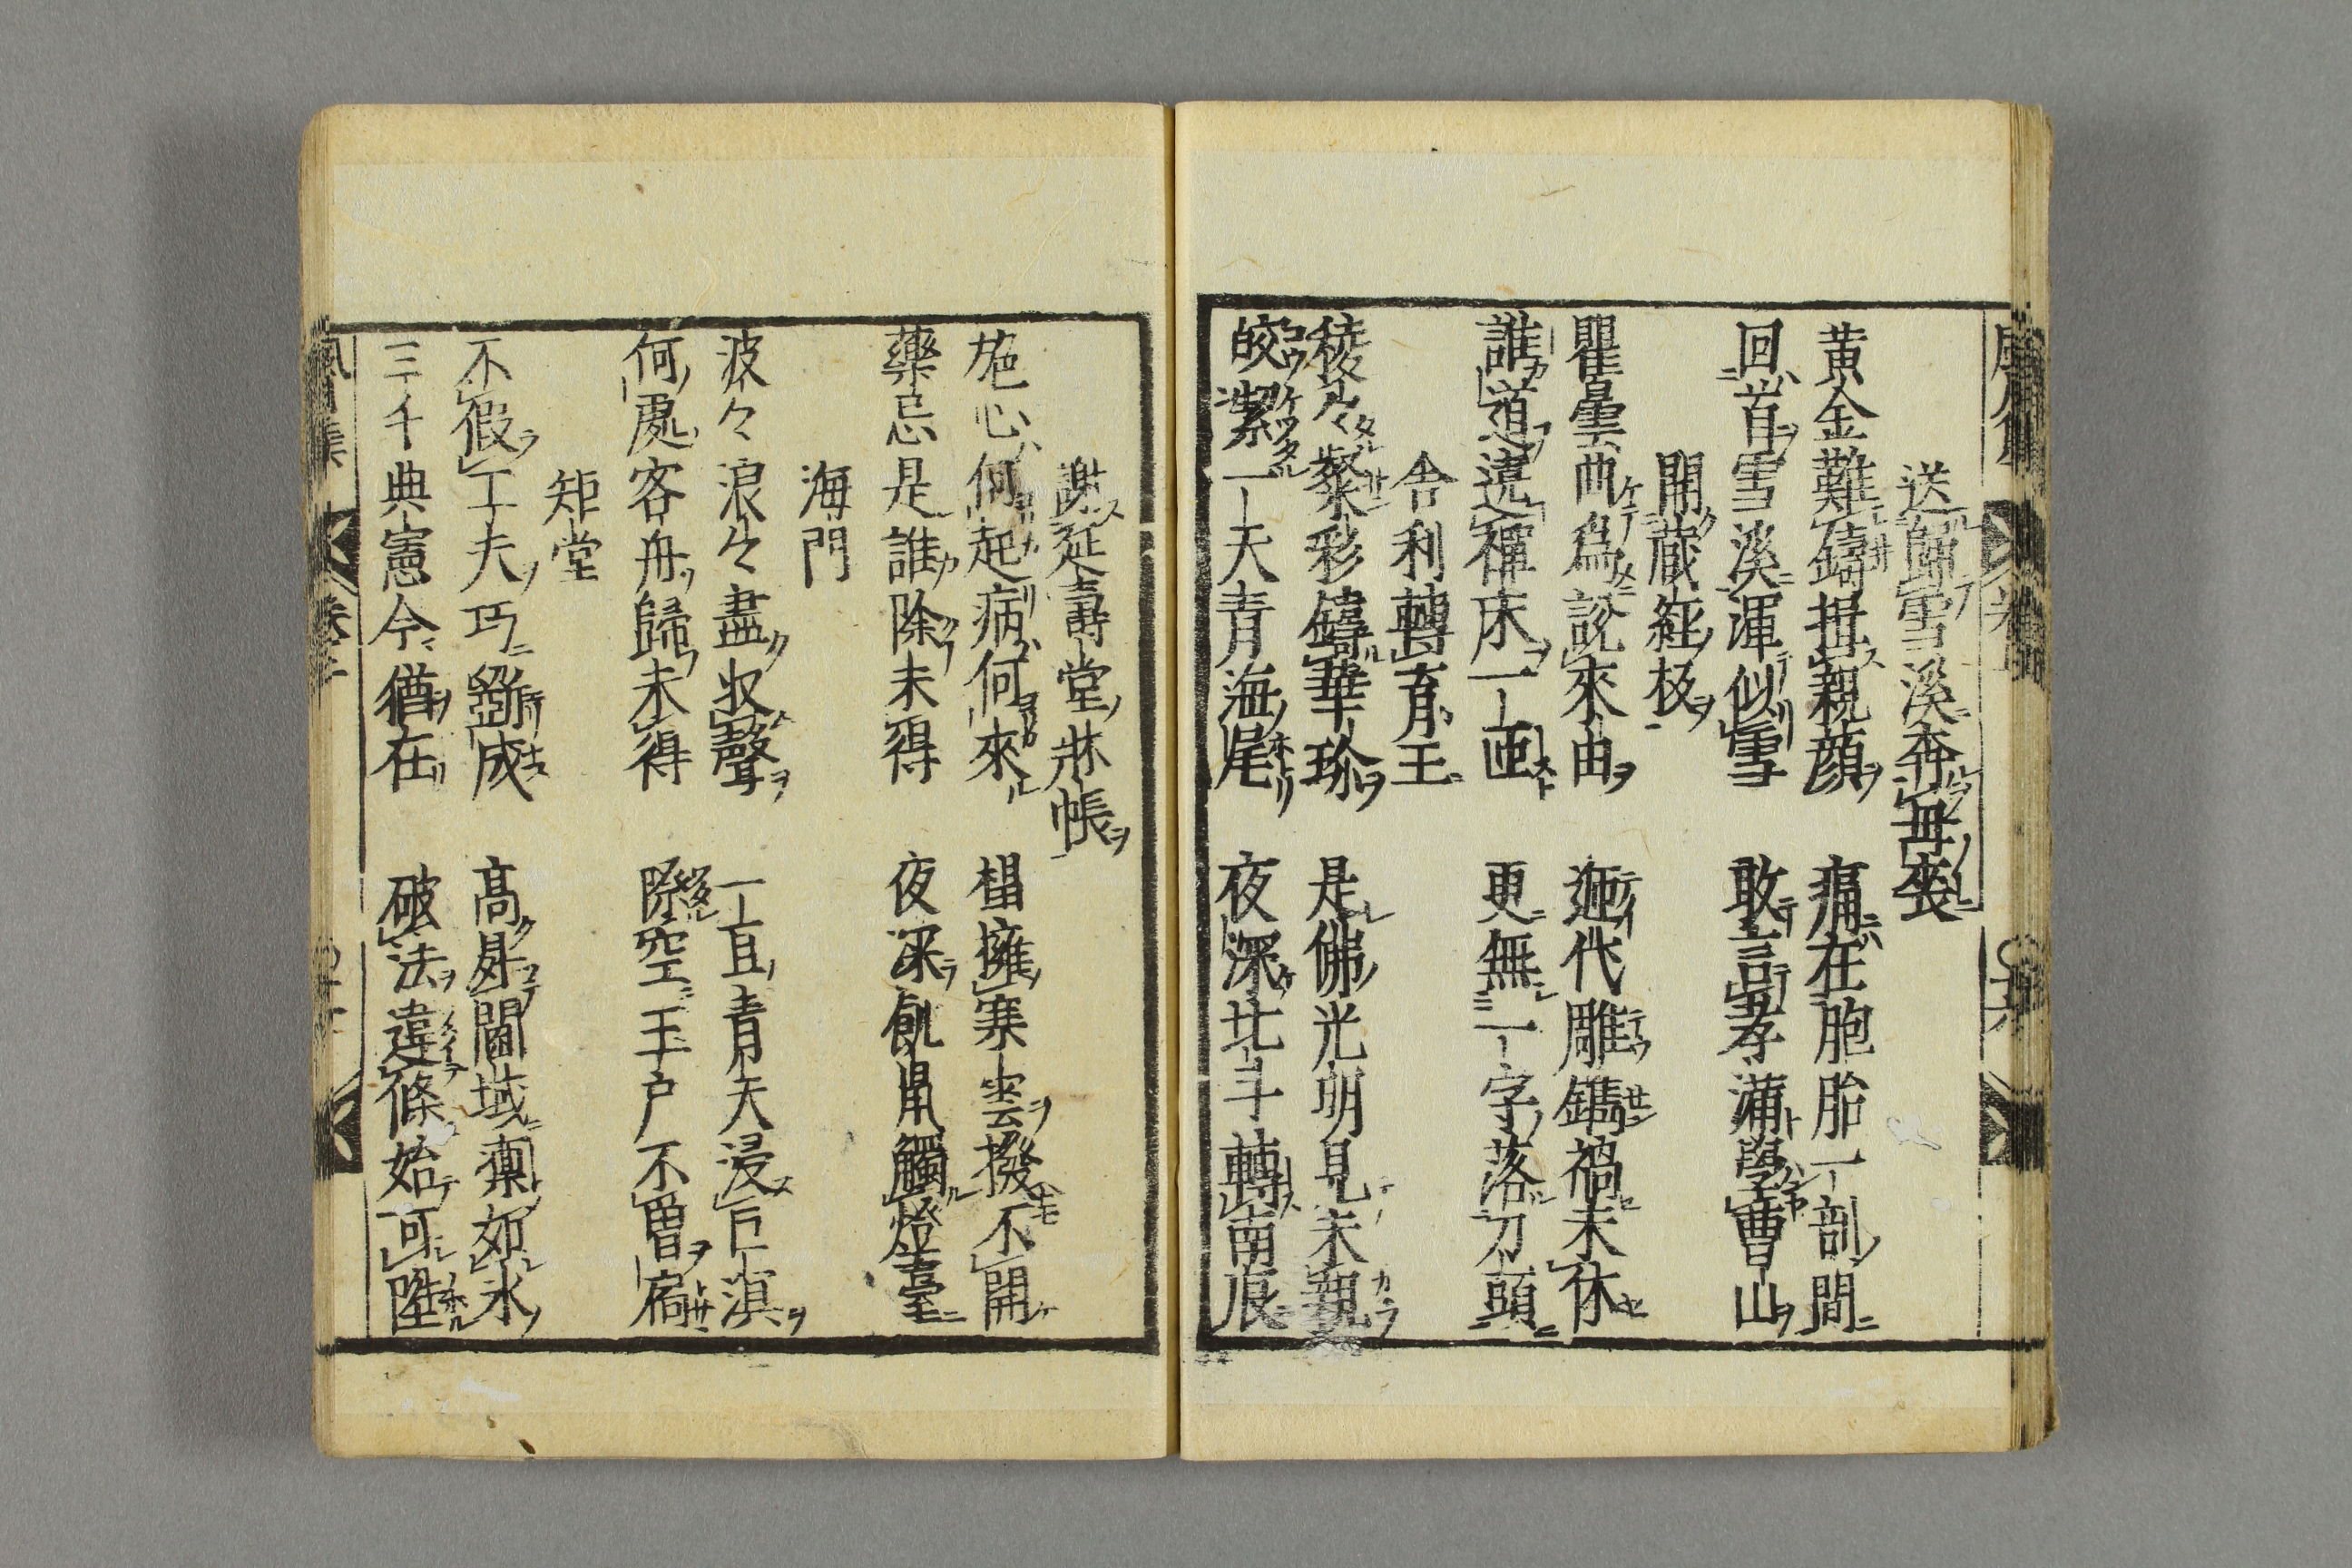 送歸雪溪奔母喪
黄金難鑄揖親顔　痛在胞胎一剖間
回首雪溪渾似雪　敢言孝滿學曹山
開蔵経板
瞿曇曲爲説來由　迊代雕鐫禍未休
誰道遶禪床一匝　更無一字落刀頭
舎利轉育王
稜々粲彩鑄華珎　是佛光明見未親
皎潔一天青海尾　夜深北斗轉南辰
謝延壽堂牀帳
葩心何起病何來　榻擁寒雲撥不開
藥忌是誰除未得　夜深飢鼠觸燈臺
海門
波々浪々盡収聲　一直青天浸巨溟
何處客舟歸未得　際空王戸不曽扃
矩堂
不假工夫巧斵成　高昇閫域凜如氷
三千典憲今猶在　破法違條始可陞